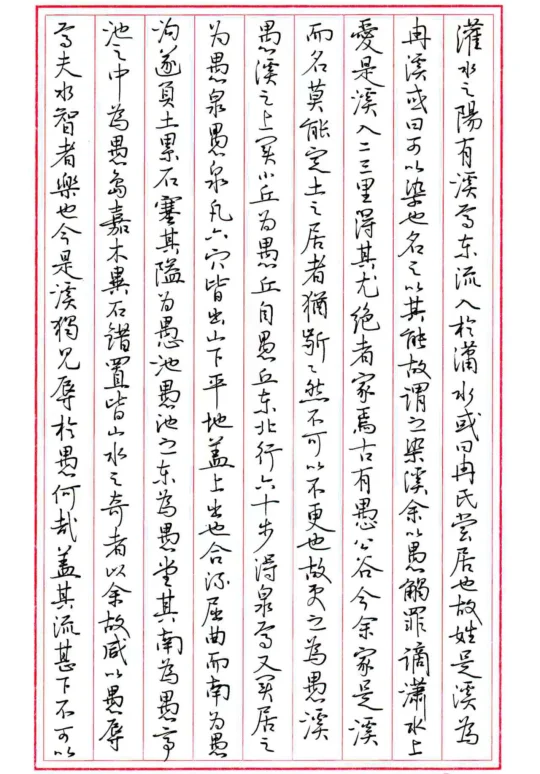 灌水之陽有溪焉東流入於瀟水或曰冉氏嘗居也故姓是溪為
冉溪或曰可以染也名之以其能故謂之染溪余以愚觸罪謫瀟水上
愛是溪入二三里得其尤絶者家焉古有愚公谷今余家是溪
而名莫能定土之居者猶齗〻然不可以不更也故更之為愚溪
愚溪之上買小丘為愚丘自愚丘東北行六十步得泉焉又買居之
為愚泉愚泉凡六穴皆出山下平地蓋上出也合流屈曲而南為愚
沟遂負土累石塞其隘為愚池愚池之東為愚堂其南為愚亭
池之中為愚島嘉木異石錯置皆山水之奇者以余故咸以愚辱
焉夫水智者樂也今是溪獨見辱於愚何哉蓋其流甚下不可以